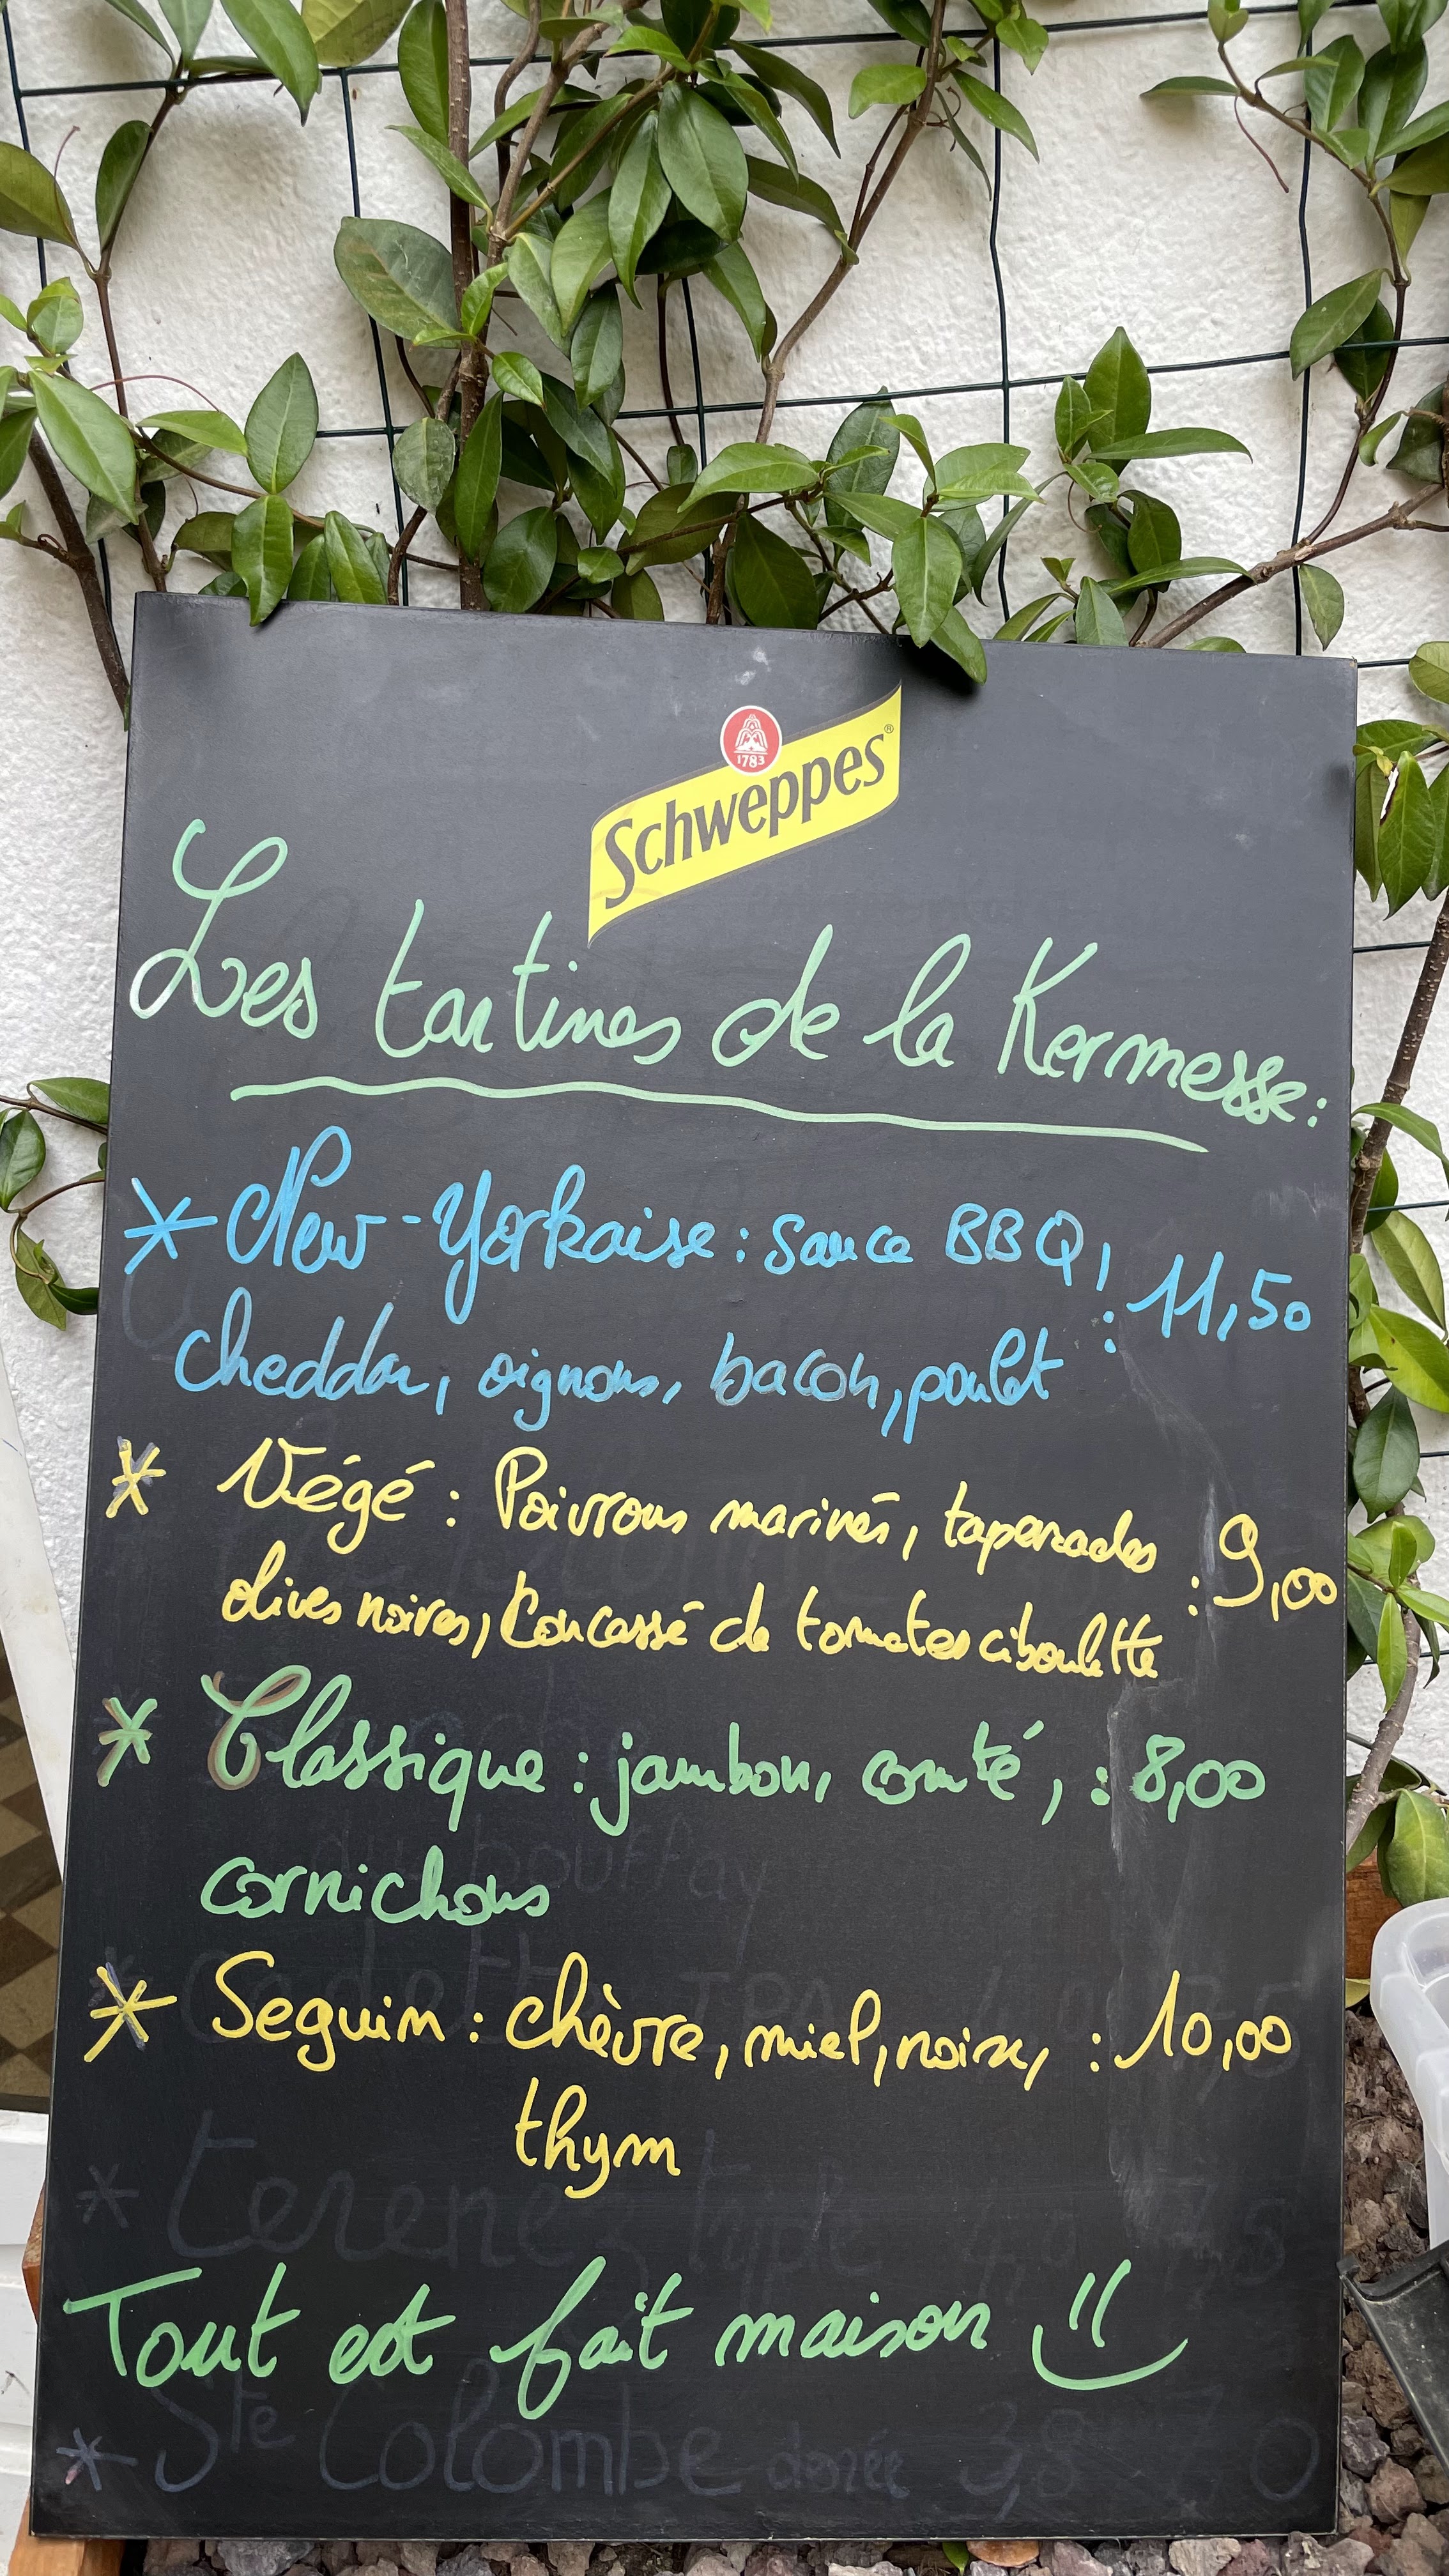 1783
Schweppes®
Les tartines de la Kermesse :
* New-Yorkaise : sauce BBQ,
cheddar, oignons, bacon, poulet : 11,50
* Végé : Poivrons marinés, tapenades
olives noires, Concassé de tomates ciboulette : 9,00
* Classique : jambon, comté, : 8,00
cornichons
* Seguin : chèvre, miel, noix, : 10,00
thym
Tout est fait maison
* Ste Colombe dorée 3,8